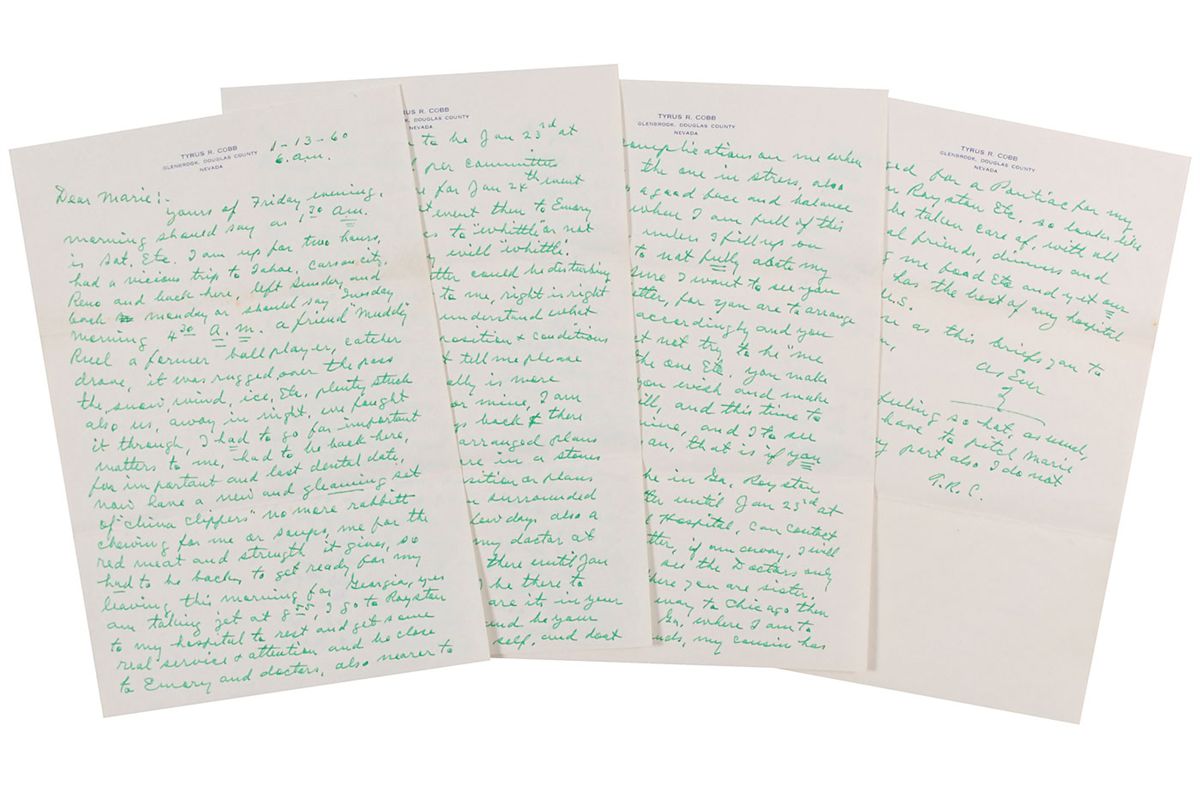 TYRUS R. COBB
GLENBROOK, DOUGLAS COUNTY
NEVADA
1-13-60
6. am.
Dear Marie:-
Yours of Friday evening,
morning should say as 1,30 a.m.
is Sat. Etc. I am up for two hours,
had a vicious trip to Tahoe, Carson city,
Reno and back here left Sunday and
back monday or should say "Tuesday
morning 4 30 A.M. a friend "Muddy"
Ruel a former ball player, catcher
drove, it was rugged over the pass
the snow, wind, ice, Etc. plenty stuck
also us, away in night, we fought
it through, I had to go for important
matters to me, had to be back here,
for important and last dental date,
now have a new and gleaming set
of "China Clippers" no more rabbitt
chewing for me or soups, me for the
red meat and strength it gives, so
had to be back, to get ready for my
leaving this morning for Georgia, yes
am taking jet at 8 55, I go to Royston
to my hospital to rest and get some
real service & attention and be close
to Emory and doctors, also nearer to
RUS R. COBB
GLENBROOK, DOUGLAS COUNTY
NEVADA
to be Jan 23rd at
per committee
for Jan 24th went
event then to Emory
to "whittle" or not
will whittle.
could be disturbing
to me, right is right
understand what
position & conditions
tell me please
is more
or mine, I am
back & there
arranged plans
in a stones
position or plans
surrounded
days also a
my doctor at
there until Jan
be there to
are its in your
and be your
self, and dont
TYRUS R. COBB
GLENBROOK, DOUGLAS COUNTY
NEVADA
complications on me when
the one in stress, also
a good face and balance
when I am full of this
unless I fill up on
to not fully abate my
sure I want to see you
for you are to arrange
accordingly and you
not try to be "me
the one Etc. you make
you wish and make
and this time to
mine, and I to see
that is if you
be in Ga. Royston
until Jan 23rd at
Hospital, can contact
if am away, I will
see the Doctors only
there you are sister,
way to Chicago then
Ga. where I am to
my cousin has
TYRUS R. COBB
GLENBROOK, DOUGLAS COUNTY
NEVADA
for a Pontiac for my
Royston Etc. so looks like
be taken care of, with all
friends, dinners and
me food Etc and yet our
has the best of any hospital
U.S.
as this briefs you to
As Ever
T
feeling so hot, as usual,
have to pitch Marie
my part also I do not
T.R.C.